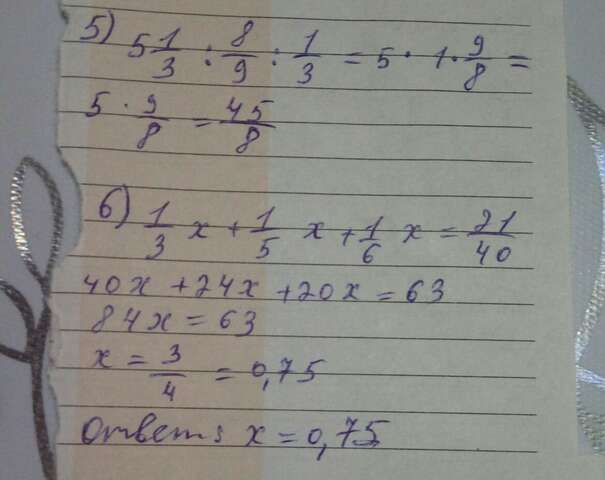 5) 5 1/3 : 8/9 : 1/3 = 5 · 1 · 9/8 =
5 · 9/8 = 45/8
6) 1/3 x + 1/5 x + 1/6 x = 21/40
40x + 24x + 20x = 63
84x = 63
x = 3/4 = 0,75
Ответ: x = 0,75